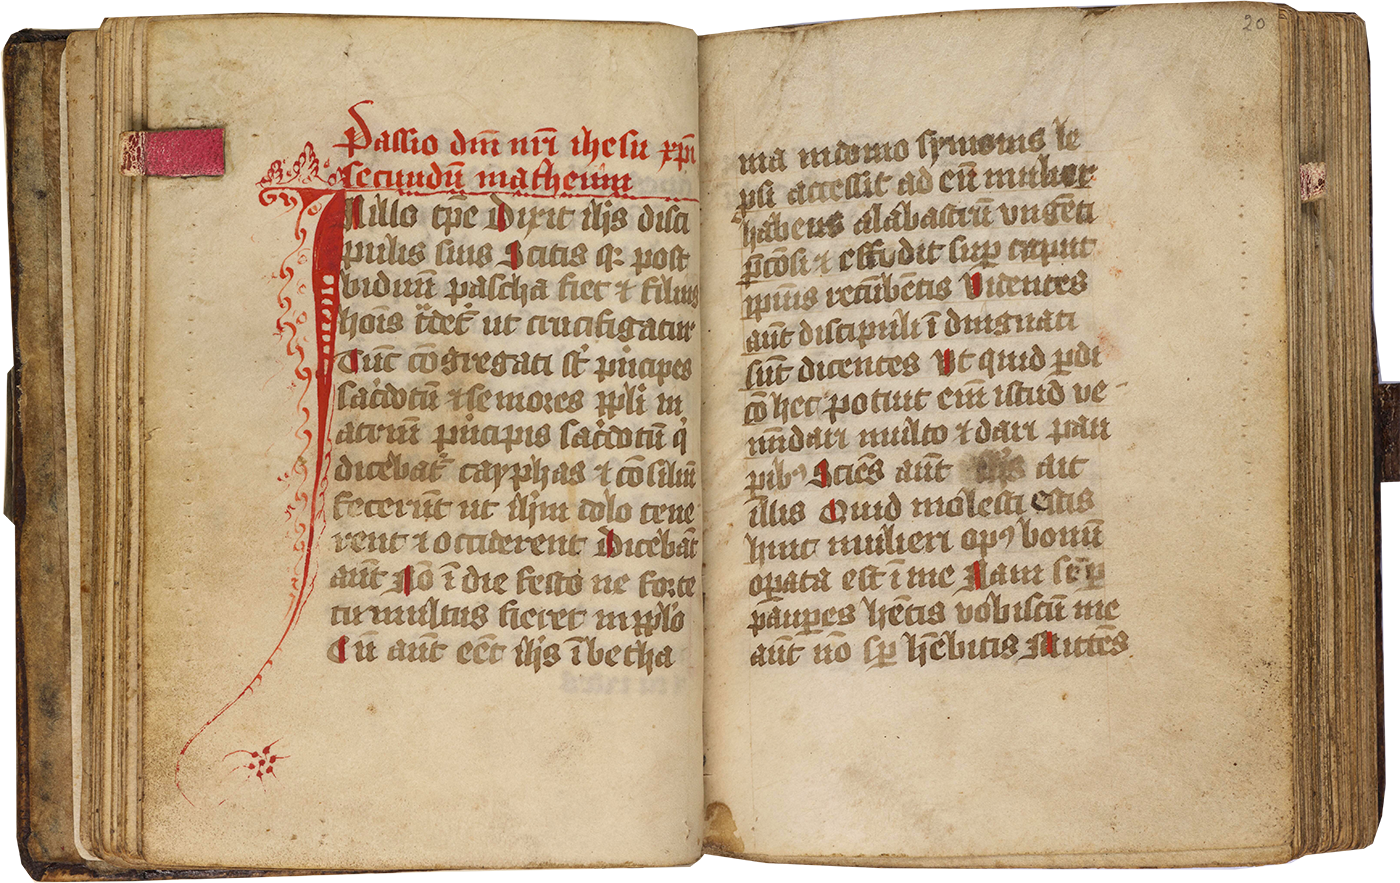 Passio dn̄i nr̄i ihesu xp̄i
secundū matheum
In illo tp̄e Dixit ih̄s disci
pulis suis Scitis q post
biduū pascha fiet ⁊ filius
hoīs tdet ut crucifigatur
Tūc cōgregati st p'ncipes
sacdotū ⁊ seniores pp̄li in
atriū p'ncipis sacdotū q
dicebat cayphas ⁊ cōsiliū
fecerūt ut ih̄m dolo tene
rent ⁊ occiderent Dicebāt
aūt Nō ī die festo ne forte
tumultus fieret in pp̄lo
Cū aūt eēt ih̄s ī betha
20
nia in domo symonis le
psi accessit ad eū mulier
habens alabastrū vngēti
p̄cosi ⁊ effudit sup caput
ipius recūbētis Videntes
aūt discipuli ī dingnati
sūt dicentes Vt quid pdi
cō hec potuit em̄ istud ve
nūdari multo ⁊ dari pau
pibꝰ Sciēs aūt ih̄s ait
illis Quid molesti estis
huic mulieri opꝰ bonū
operata est ī me Nam semp
paupes hētis vobiscū me
aūt nō sp hēbitis Mittēs